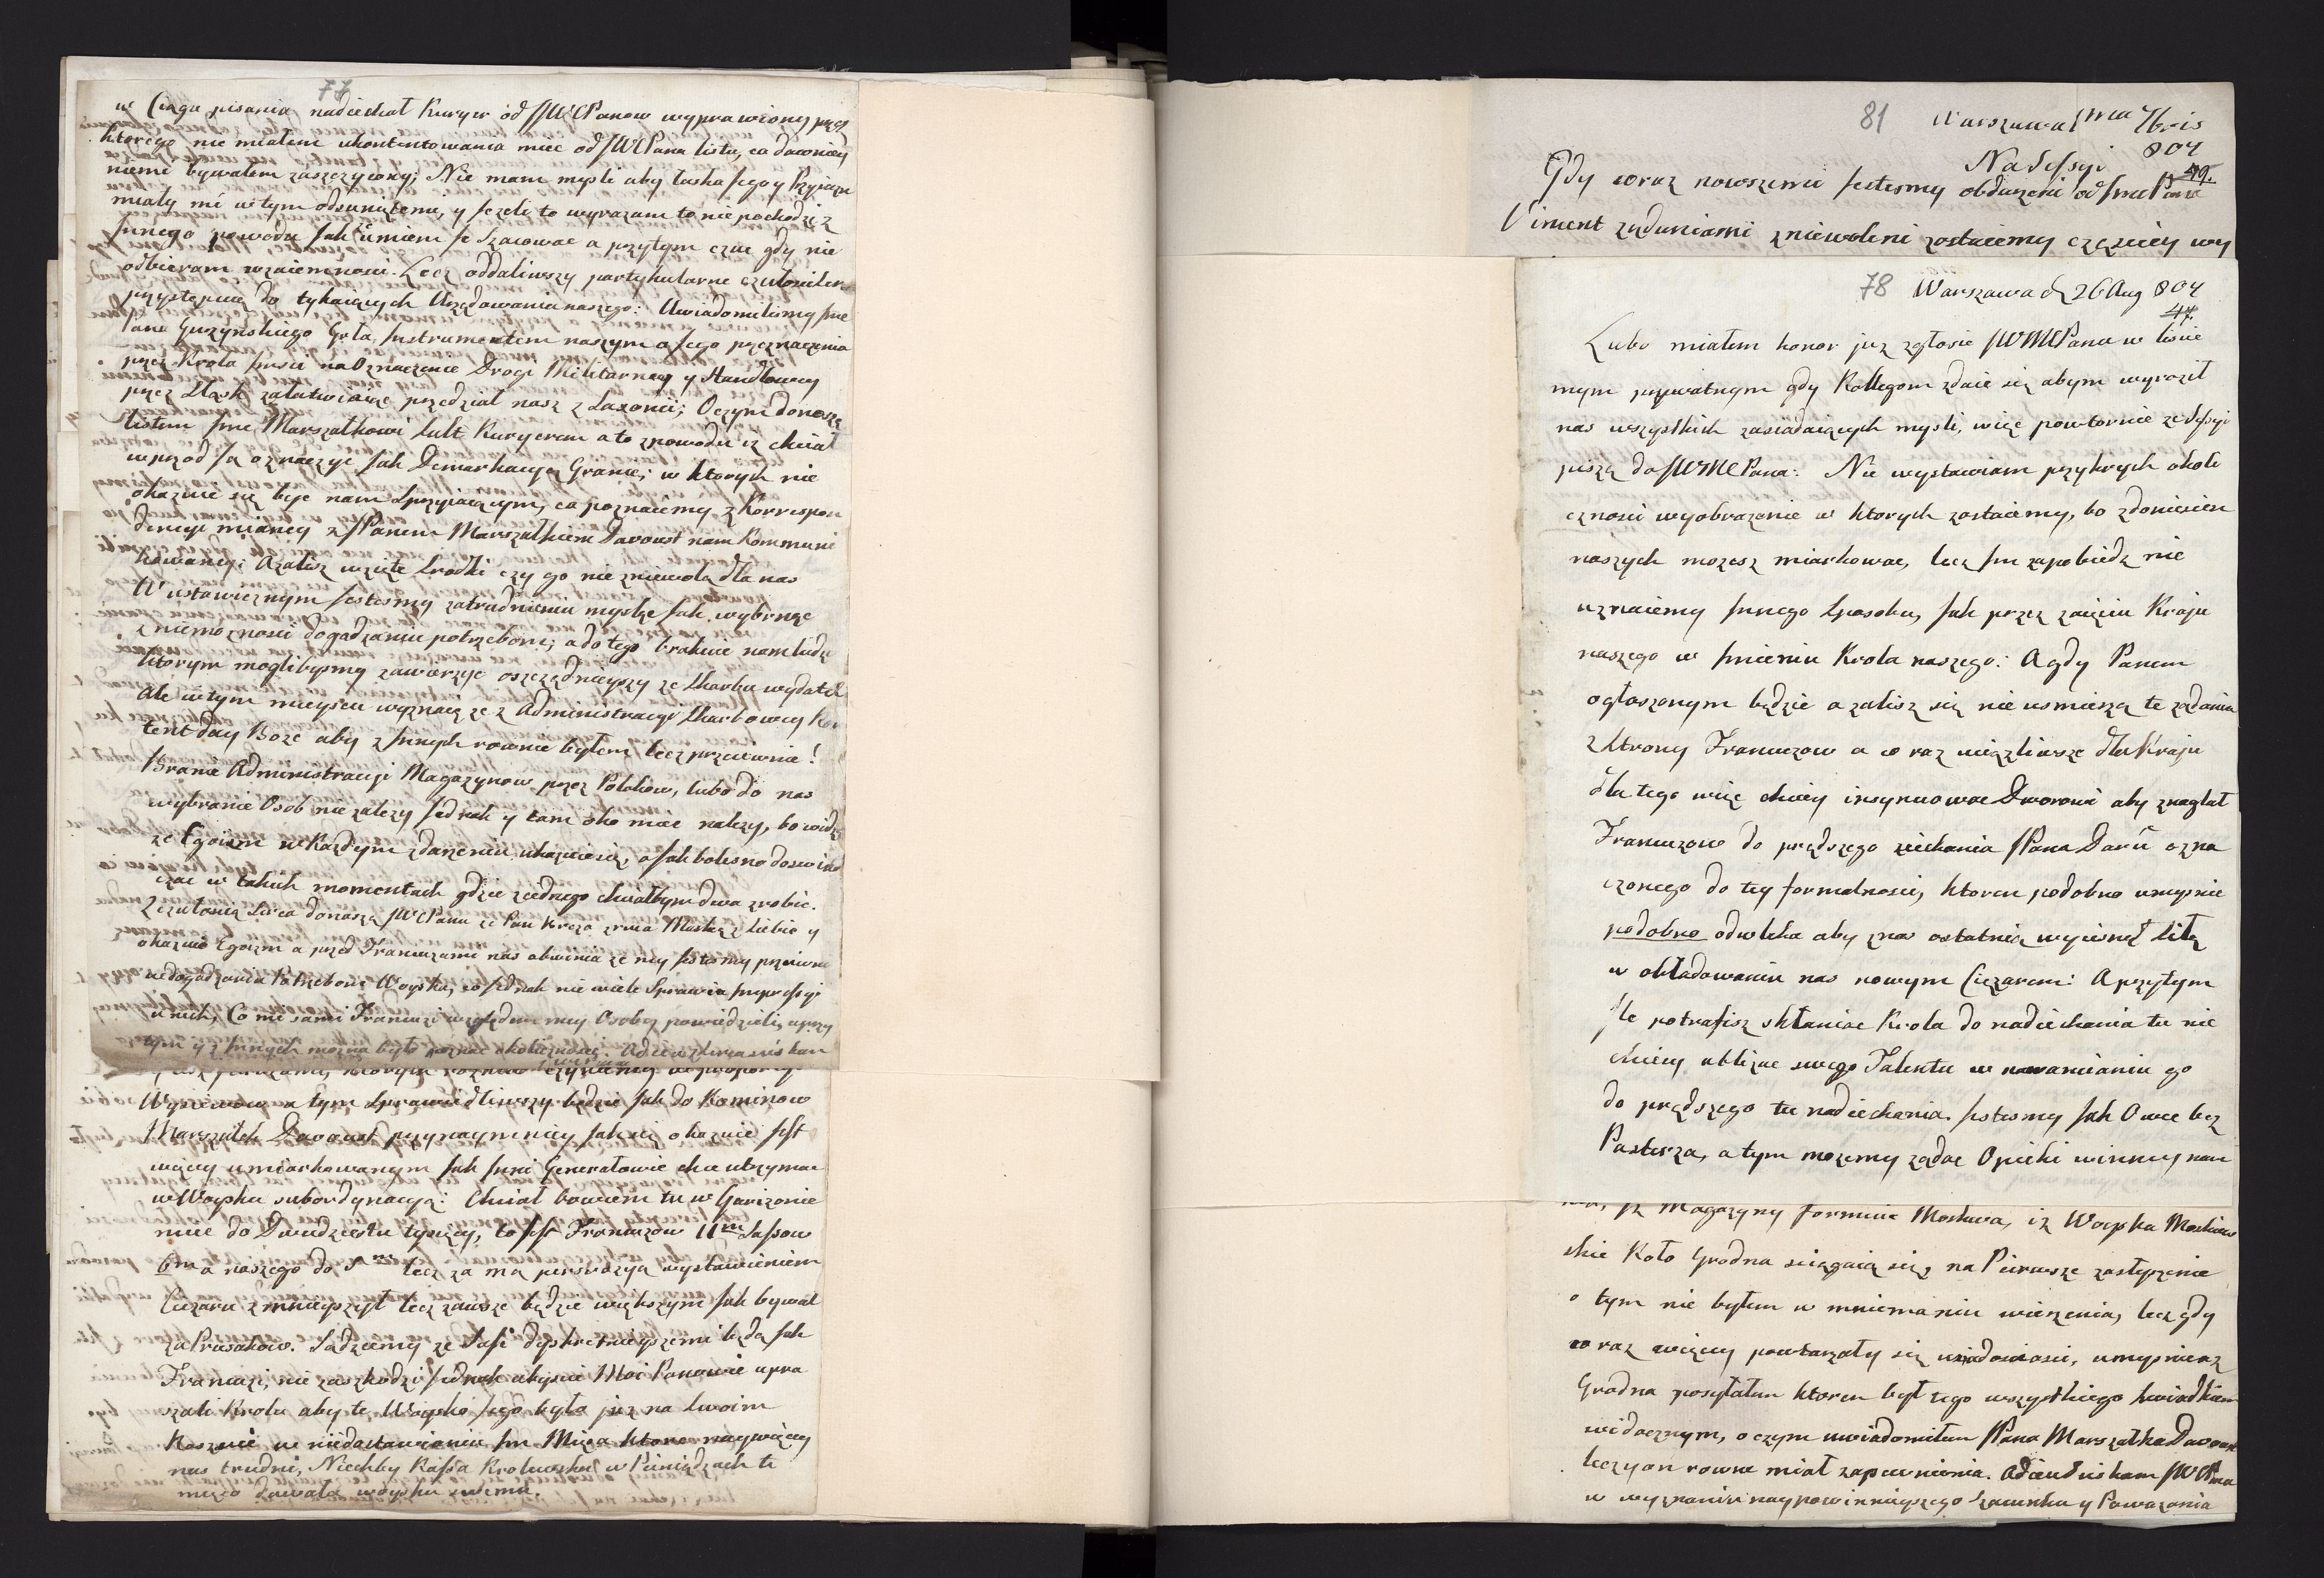 77
w Ciągu pisania nadiechał Kuryer od JJWWPanow wyprawiony przez
ktorego nie miałem ukontentowania miec od JWWPana listu, co dawniey
niemi bywałem zaszczycony; Nie mam mysli aby łaska Jego y Przyiazn
miały mi w tym odsunięzemi, y jezeli to wyrazam to nie pochodzi z
Innego powodu jak umiem je Szacowac a przytym czuc gdy nie
odbieram wzaiemnosci. Lecz oddaliwszy partykularne czułosci
przystępuię do tykaiących Urzędowania naszego: Uwiadomilismy Jme
Pana Guzynskiego Gräla, Instrumentem naszym o Jego przeznaczenia
przez Krola Imsci na Oznaczenie Drogi Militarney y Handlowey
przez Sląsk załatwiaiąc przedział nasz z Saxonii; Oczym donoszę
listem Jme Marszałkowi Sult Kuryerem a to z powodu iz chciał
wprzod Ja oznaczyc jak Demarkacyą Granic; w ktorych nie
okazuie się byc nam Sprzyiaiącym, co poznaiemy z Korrespon
dencyi mianey z JPanem Marszałkiem Davoust nam Kommuni
kowaney: Azalisz uzyte Srodki czy go nie zniewolą dla nas
W ustawicznym jestesmy zatrudnieniu myslęc jak wybrnąc
z niemoznosci dogadzaniu potrzebom; a do tego brakuie nam ludzi
ktorym moglibysmy zawierzyc oszczędnieyszy ze Skarbu wydatek
Ale w tym mieyscu wyznaię ze z Administracyi Skarbowey Kon
tent day Boze aby z Innych rownie byłem lecz przeciwnie!
Branie Administracyi Magazynow przez Polakow, lubo do nas
wybranie Osob nie zalezy jednak y tam oko miec nalezy, bo widzę
ze Egoizm w Kazdym zdarzeniu ukazuie się, a jak bolesno doswiad
czac w takich momentach gdzie z iednego chciałbym dwa zrobic.
Z czułoscią Serca donoszę JWWPanu ze Pan Kreza zrzuca Maskę z Siebie y
okazuie Egoizm a przed Francuzami nas obwinia ze my jestesmy przeciwni
niedogadzania Potrzebom Woyska, co jednak nie wiele Sprawia Impressyi
u nich, Co mi sami Francuzi względem mey Osoby powiedzieli, a przy
tym y z Innych mozna było poznac okolicznosci.
Wyziewow a tym Sprawiedliwszy będzie jak do Kominow
Marszałek Davoust przynaymniey jak się okazuie jest
więcey umiarkowanym jak Inni Generałowie chce utrzymac
w Woysku subordynacyą: Chciał bowiem tu w Garnizonie
miec do Dwudziestu tysięcy, to jest Francuzow 11m Sassow
6m a naszego do 5m lecz za mą perswazyą wystawieniem
Ciężaru zmnieyszył lecz zawsze będzie większym jak bywał
za Prusakow. Sądziemy ze Sasi dyskretnieyszemi będą jak
Francuzi, nie zaszkodzi jednak abyscie Moi Panowie upra
szali Krola aby te Woysko Jego było już na Swoim
Koszcie w niedostawieniu Im Mięsa ktore naywięcey
nas trudni, Niechby Kassa Krolewska w Pieniądzach te
mięso dawała woysku swemu.
81
Warszawa 1ma 7bris
804
Na Sessyi
49.
Gdy coraz nowszemi jestesmy obdarzeni od Jme Pana
Vincent ządaniami zniewoleni zostaiemy częsciey wy
78
Warszawa d. 26 Aug 804
47.
Lubo miałem honor juz zgłosic JWMWPanu w liscie
mym prywatnym gdy Kollegom zdaie się abym wyraził
nas wszystkich zasiadaiących mysli, więc powtornie ze Sessyi
piszę do JWMWPana: Nie wystawiam przykrych okoli
cznosci wyobrazenie w ktorych zostaiemy, bo z doniesien
naszych mozesz miarkowac, lecz Im zapobiedz nie
uznaiemy Innego Sposobu, jak przez zaięcie Kraju
naszego w Imieniu Krola naszego: A gdy Panem
ogłoszonym będzie azalisz się nie usmierzą te ządania
z Strony Francuzow a co raz uciązliwsze dla Kraju
dla tego więc chciey insynuowac Dworowi aby znaglał
Francuzow do prędszego ziechania JPana Daru ozna
czonego do tey formalnosci, ktoren podobno umyslnie
podobno odwleka aby z nas ostatnią wycisnął Siłę
w okładowaniu nas nowym Ciężarem: A przytym
Ile potrafisz skłaniac Krola do nadiechania tu nie
chciey ubliżac swego Talentu w namawianiu go
do prędszego tu nadiechania. Jestesmy jak Owce bez
Pasterza, a tym mozemy ządac Opieki winney nam
iz Magazyny formuie Moskwa, iz Woyska Moskiew
skie Koło Grodna sciągaią się, na Pierwsze zasłyszenie
o tym nie byłem w mniemaniu wierzenia, lecz gdy
co raz więcey powtarzały się wiadomosci, umyslnie z
Grodna posyłałem ktoren był tego wszystkiego Swiadkiem
widocznym, o czym uwiadomiłem JPana Marszałka Davoust
lecz y on rowne miał zapewnienia. Adieu Sciskam JWWPana
w wyznaniu naypowinnieyszego Szacunku y Powazania